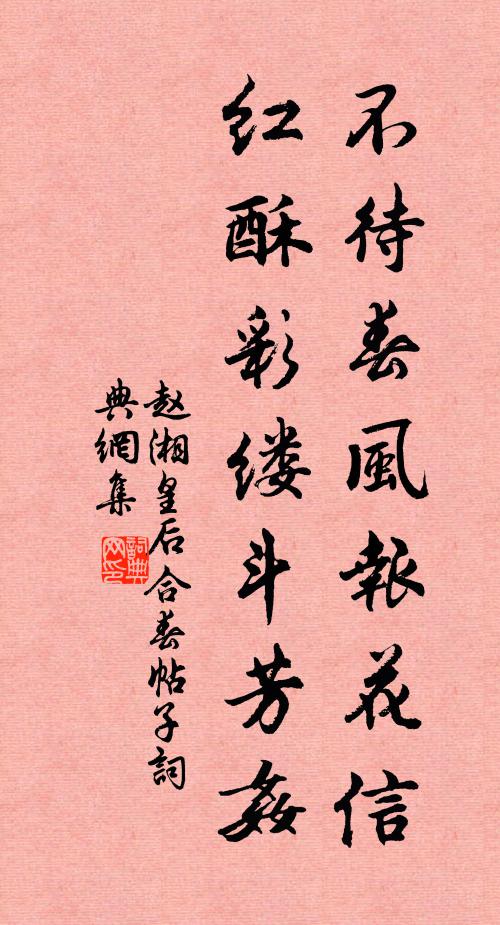 不待春風報花信
红酥彩缕斗芳姦
赵湘皇后合春帖子詞
典網集
詞典網印